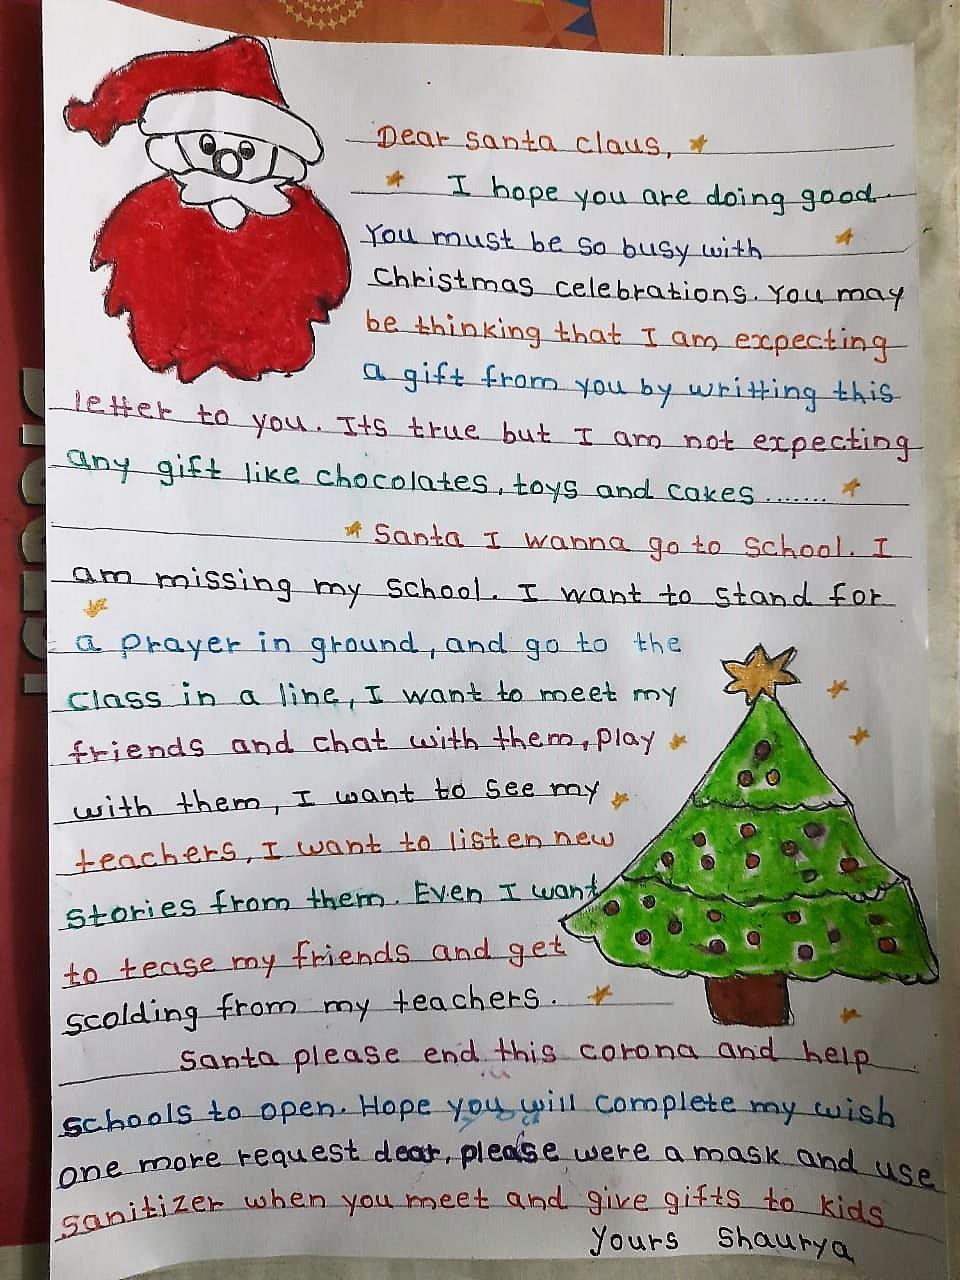 Dear Santa Claus,
I hope you are doing good
You must be so busy with
Christmas celebrations. You may
be thinking that I am expecting
a gift from you by writting this
letter to you. Its true but I am not expecting
any gift like chocolates, toys and cakes.......
Santa I wanna go to school. I
am missing my school. I want to stand for
a prayer in ground, and go to the
class in a line, I want to meet my
friends and chat with them, play
with them, I want to see my
teachers, I want to listen new
stories from them. Even I want
to tease my friends and get
scolding from my teachers.
Santa please end this corona and help
schools to open. Hope you will complete my wish
one more request dear, please were a mask and use
sanitizer when you meet and give gifts to kids
Yours Shaurya